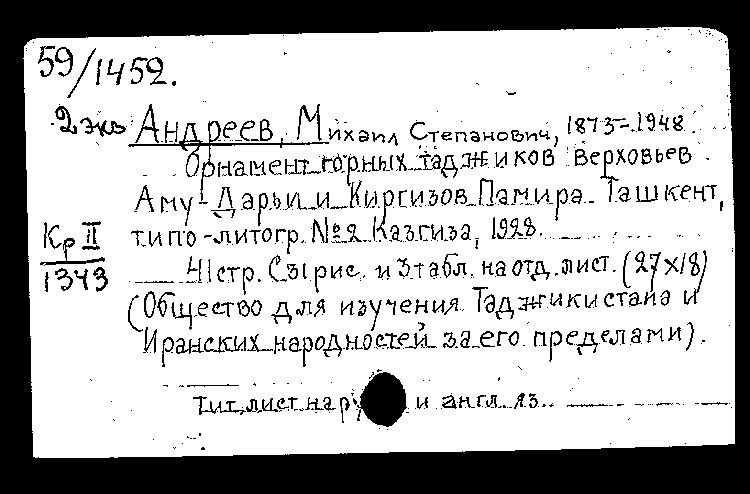 59/1452.
2 экз Андреев, Михаил Степанович, 1873-1948
Орнамент горных таджиков верховьев
Аму-Дарьи и Киргизов Памира. Ташкент,
Кр II типо-литогр. №2 Казгиза, 1928.
1343 41 стр. С 31 рис. и 3 табл. на отд. лист. (27х18)
(Общество для изучения Таджикистана и
Иранских народностей за его пределами).
Тит. лист на и англ. яз.